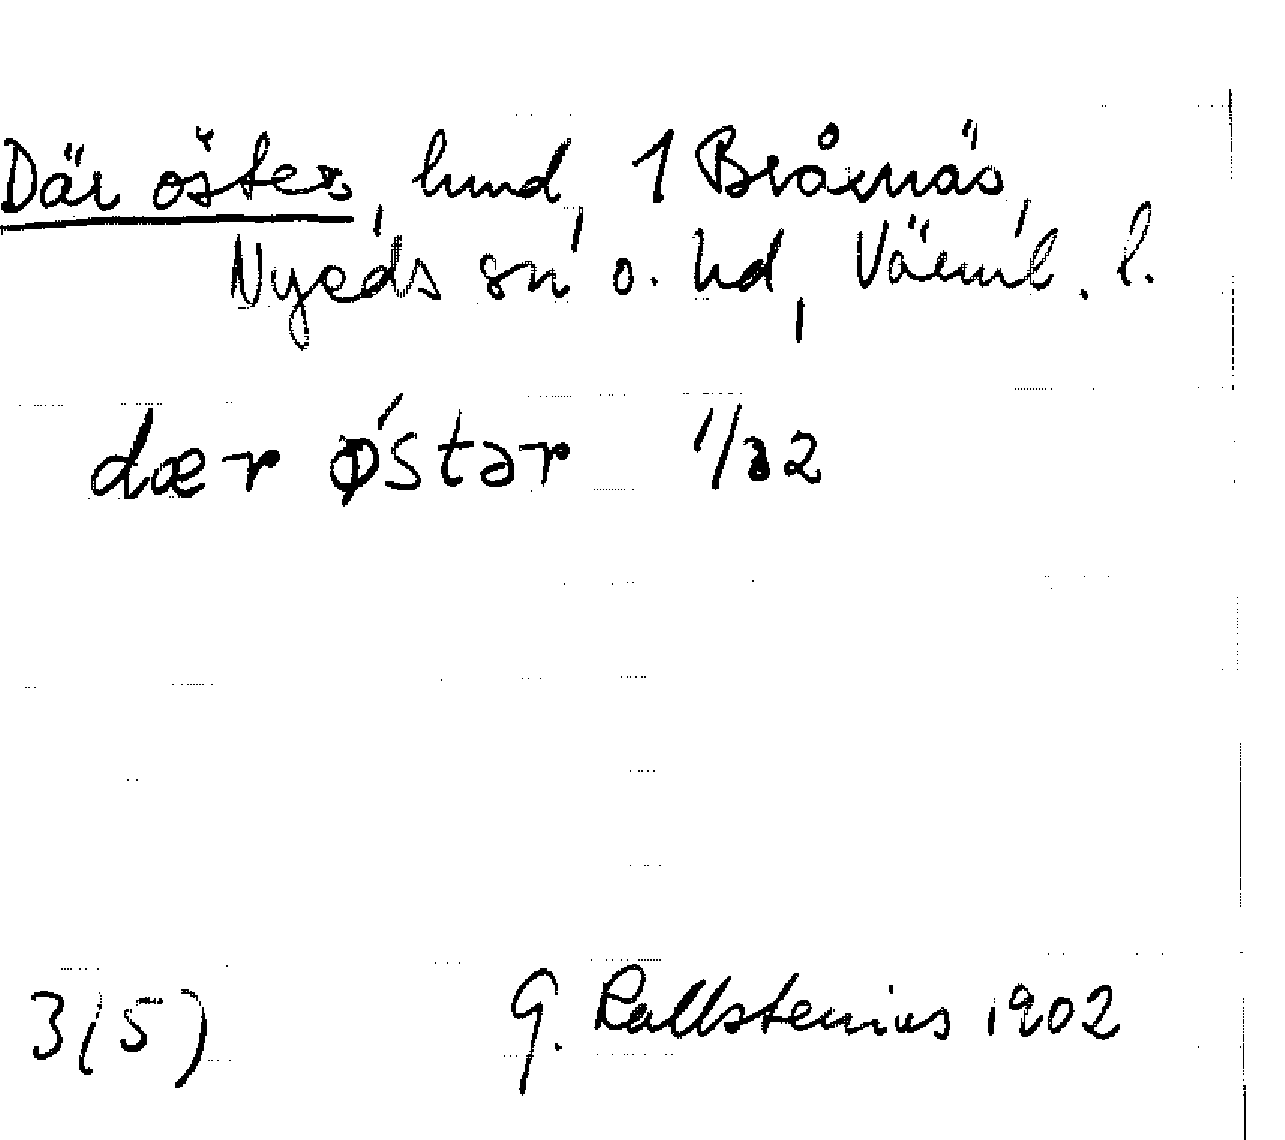 Där öster, lund, 1 Bråtnäs,
Nyeds sn o. hd, Värml. l.
dær østər 1/32
3(5) G. Kallstenius 1902